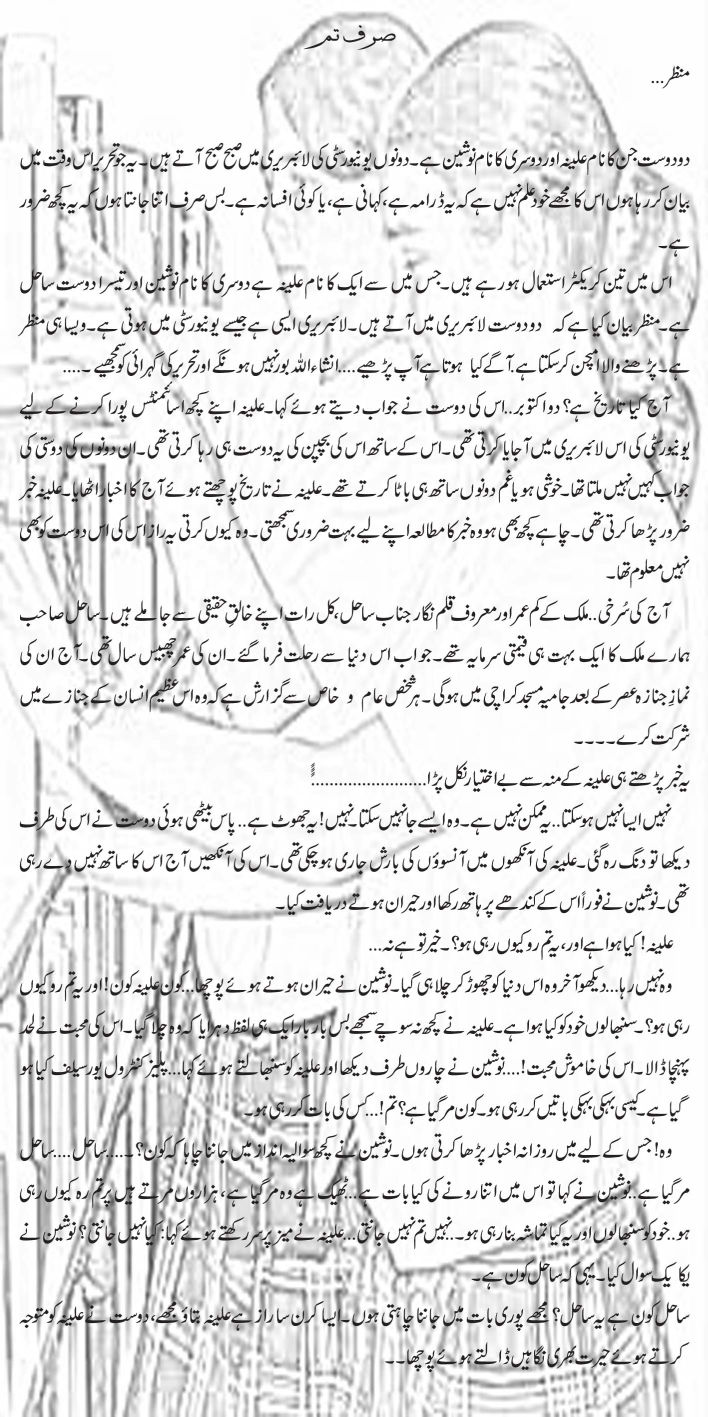 صرف تم
منظر...
دو دوست جن کا نام علینہ اور دوسری کا نام نوشین ہے۔ دونوں یونیورسٹی کی لائبریری میں صبح صبح آتے ہیں۔ یہ جو تحریر اس وقت میں
بیان کر رہا ہوں اس کا مجھے خود علم نہیں ہے کہ یہ ڈرامہ ہے، کہانی ہے، یا کوئی افسانہ ہے۔ بس صرف اتنا جانتا ہوں کہ یہ کچھ ضرور
ہے۔
اس میں تین کریکٹر استعمال ہو رہے ہیں۔ جس میں سے ایک کا نام علینہ ہے دوسری کا نام نوشین اور تیسرا دوست ساحل
ہے۔ منظر بیان کیا ہے کہ دو دوست لائبریری میں آتے ہیں۔ لائبریری ایسی ہے جیسے یونیورسٹی میں ہوتی ہے۔ ویسا ہی منظر
ہے۔ پڑھنے والا امیجن کر سکتا ہے. آگے کیا ہوتا ہے آپ پڑھیے.... انشاءاللہ بور نہیں ہونگے اور تحریر کی گہرائی کو سمجھیے۔....
آج کیا تاریخ ہے؟ دو اکتوبر.. اس کی دوست نے جواب دیتے ہوئے کہا۔ علینہ اپنے کچھ اسائمنٹس پورا کرنے کے لیے
یونیورسٹی کی اس لائبریری میں آ جایا کرتی تھی۔ اس کے ساتھ اس کی بچپن کی یہ دوست ہی رہا کرتی تھی۔ ان دونوں کی دوستی کی
جواب کہیں نہیں ملتا تھا۔ خوشی ہو یا غم دونوں ساتھ ہی بانٹا کرتے تھے۔ علینہ نے تاریخ پوچھتے ہوئے آج کا اخبار اٹھایا۔ علینہ خبر
ضرور پڑھا کرتی تھی۔ چاہے کچھ بھی ہو وہ خبر کا مطالعہ اپنے لیے بہت ضروری سمجھتی۔ وہ کیوں کرتی یہ راز اس کی اس دوست کو بھی
نہیں معلوم تھا۔
آج کی سُرخی.. ملک کے کم عمر اور معروف قلم نگار جناب ساحل، کل رات اپنے خالقِ حقیقی سے جا ملے ہیں۔ ساحل صاحب
ہمارے ملک کا ایک بہت ہی قیمتی سرمایہ تھے۔ جو اب اس دنیا سے رحلت فرما گئے۔ ان کی عمر چھبیس سال تھی۔ آج ان کی
نمازِ جنازہ عصر کے بعد جامیہ مسجد کراچی میں ہوگی۔ ہر شخص عام و خاص سے گزارش ہے کہ وہ اس عظیم انسان کے جنازے میں
شرکت کرے۔۔۔۔
یہ خبر پڑھتے ہی علینہ کے منہ سے بے اختیار نکل پڑا...........................
نہیں ایسا نہیں ہو سکتا.. یہ ممکن نہیں ہے۔ وہ ایسے جا نہیں سکتا۔ نہیں! یہ جھوٹ ہے.. پاس بیٹھی ہوئی دوست نے اس کی طرف
دیکھا تو دنگ رہ گئی۔ علینہ کی آنکھوں میں آنسوؤں کی بارش جاری ہو چکی تھی۔ اس کی آنکھیں آج اس کا ساتھ نہیں دے رہی
تھی۔ نوشین نے فوراً اس کے کندھے پر ہاتھ رکھا اور حیران ہوتے دریافت کیا۔
علینہ! کیا ہوا ہے اور، یہ تم رو کیوں رہی ہو؟۔ خیر تو ہے نہ...
وہ نہیں رہا... دیکھو آخر وہ اس دنیا کو چھوڑ کر چلا ہی گیا۔ نوشین نے حیران ہوتے ہوئے پوچھا... کون علینہ کون! اور یہ تم رو کیوں
رہی ہو؟۔ سنبھالوں خود کو کیا ہوا ہے۔ علینہ نے کچھ نہ سوچے سمجھے بس بار بار ایک ہی لفظ دہرایا کہ وہ چلا گیا۔ اس کی محبت نے لحد
پہنچا ڈالا۔ اس کی خاموش محبت!.... نوشین نے چاروں طرف دیکھا اور علینہ کو سنبھالتے ہوئے کہا... پلیز کنٹرول یور سیلف کیا ہو
گیا ہے۔ کیسی بہکی بہکی باتیں کر رہی ہو۔ کون مر گیا ہے؟ تم!... کس کی بات کر رہی ہو۔
وہ! جس کے لیے میں روزانہ اخبار پڑھا کرتی ہوں۔ نوشین نے کچھ سوالیہ انداز میں جاننا چاہا کہ کون؟۔.... ساحل.... ساحل
مر گیا ہے.. نوشین نے کہا تو اس میں اتنا رونے کی کیا بات ہے... ٹھیک ہے وہ مر گیا ہے، ہزاروں مرتے ہیں پر تم رہ کیوں رہی
ہو.. خود کو سنبھالوں اور یہ کیا تماشہ بنا رہی ہو... نہیں تم نہیں جانتی... علینہ نے میز پر سر رکھتے ہوئے کہا: کیا نہیں جانتی؟ نوشین نے
یکا یک سوال کیا۔ یہی کہ ساحل کون ہے۔
ساحل کون ہے یہ ساحل؟ مجھے پوری بات میں جاننا چاہتی ہوں۔ ایسا کرن سا راز ہے علینہ بتاؤ مجھے، دوست نے علینہ کو متوجہ
کرتے ہوئے حیرت بھری نگاہیں ڈالتے ہوئے پوچھا۔۔